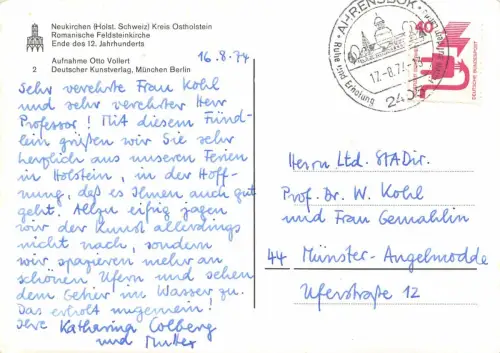 Neukirchen (Holst. Schweiz) Kreis Ostholstein
Romanische Feldsteinkirche
Ende des 12. Jahrhunderts
Aufnahme Otto Vollert
2 Deutscher Kunstverlag, München Berlin
16.8.74
Sehr verehrte Frau Kohl
und sehr verehrter Herr
Professor! Mit diesem Fünd-
lein grüßen wir Sie sehr
herzlich aus unseren Ferien
in Holstein, in der Hoff-
nung, daß es Ihnen auch gut
geht. Allzu eifrig jagen
wir der Kunst allerdings
nicht nach, sondern
wir spazieren mehr an
schönen Ufern und sehen
dem Getier im Wasser zu.
Das erholt ungemein!
Ihre Katharina Colberg
und Mutter
AHRENSBÖK
Ruhe und Erholung
17.-8.74-13
2405
40
Herrn Ltd. StADir.
Prof. Dr. W. Kohl
und Frau Gemahlin
44 Münster-Angelmodde
Uferstraße 12